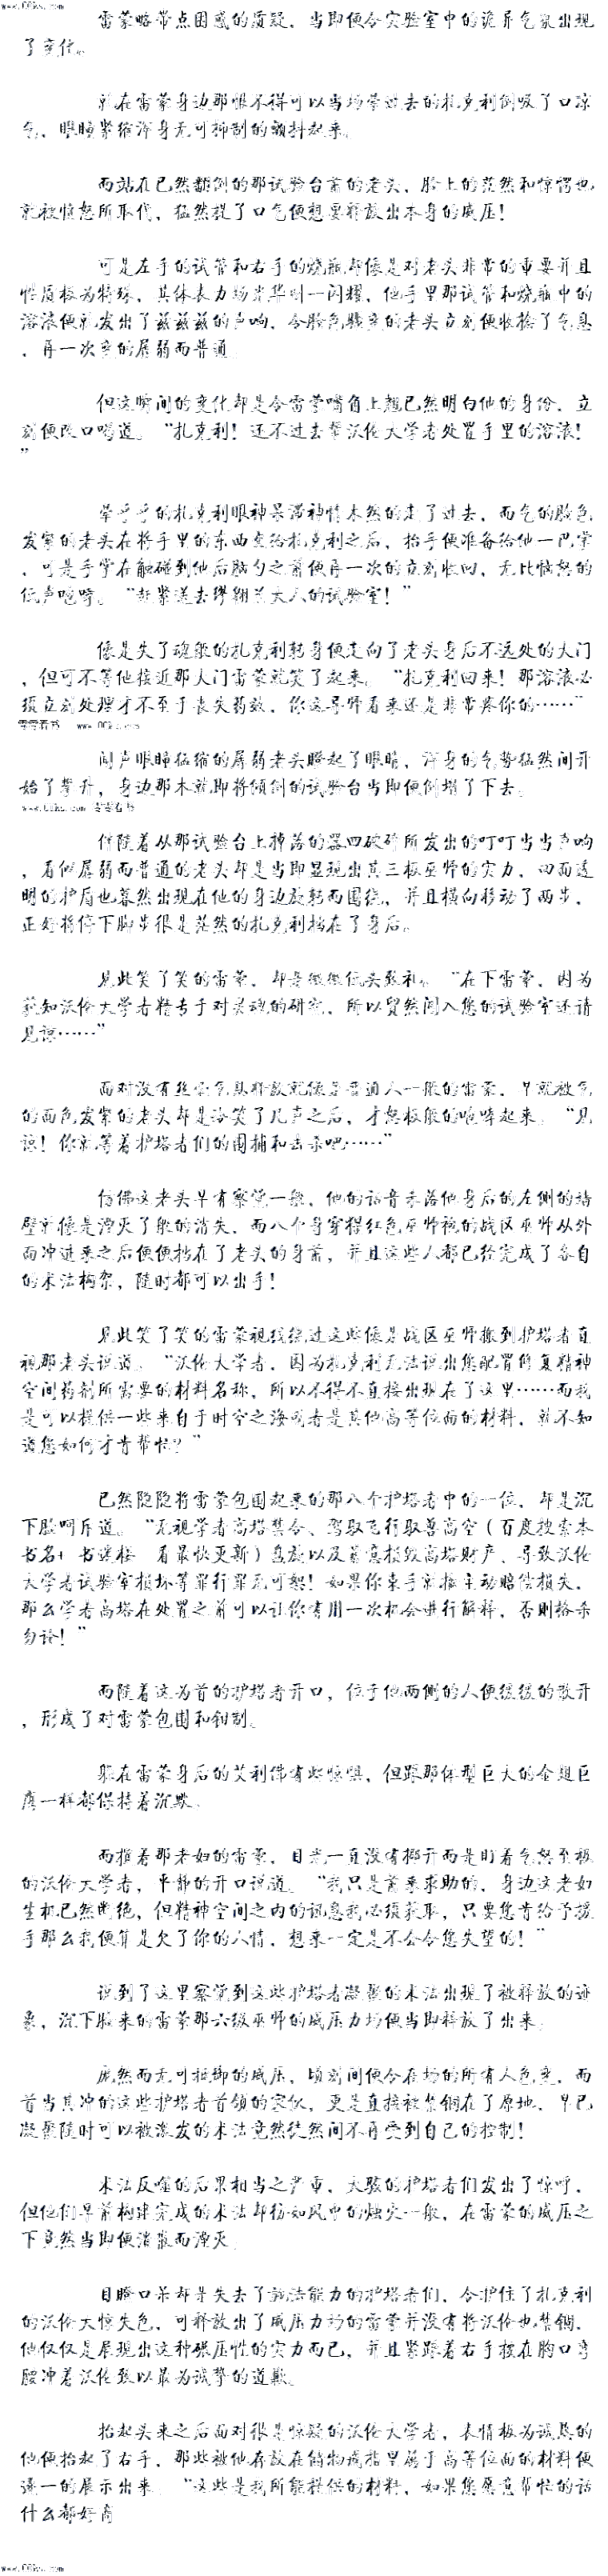 www.00ks.com
雷蒙略带点困惑的质疑，当即便令实验室中的诡异气氛出现
了变化。
就在雷蒙身边那恨不得可以当场晕过去的扎克利倒吸了口凉
气，眼瞳紧缩浑身无可抑制的颤抖起来。
而站在已然翻倒的那试验台前的老头，脸上的茫然和惊愕也
就被愤怒所取代，猛然提了口气便想要释放出本身的威压！
可是左手的试管和右手的烧瓶却像是对老头非常的重要并且
性质极为特殊，其体表力场光华刚一闪耀，他手里那试管和烧瓶中的
溶液便就发出了兹兹兹的声响，令脸色骤变的老头立刻便收敛了气息
，再一次变的孱弱而普通。
但这瞬间的变化却是令雷蒙嘴角上翘已然明白他的身份，立
刻便改口喝道。“扎克利！还不过去帮沃伦大学者处置手里的溶液！
”
晕乎乎的扎克利眼神呆滞神情木然的走了过去，而气的脸色
发紫的老头在将手里的东西交给扎克利之后，抬手便准备给他一巴掌
，可是手掌在触碰到他后脑勺之前便再一次的立刻收回，无比恼怒的
低声咆哮。“赶紧送去缪翱兰大人的试验室！”
像是失了魂般的扎克利转身便走向了老头身后不远处的大门
，但可不等他接近那大门雷蒙就笑了起来。“扎克利回来！那溶液必
须立刻处理才不至于丧失药效，你这导师看来还是非常疼你的……”
零零看书 www.00ks.com
闻声眼瞳猛缩的孱弱老头瞪起了眼睛，浑身的气势猛然间开
始了攀升，身边那本就即将倾倒的试验台当即便倒塌了下去。
www.00ks.com 零零看书
伴随着从那试验台上掉落的器皿破碎所发出的叮叮当当声响
，看似孱弱而普通的老头却是当即显现出其三级巫师的实力，四面透
明的护盾也蓦然出现在他的身边旋转而围绕，并且横向移动了两步，
正好将停下脚步很是茫然的扎克利挡在了身后。
见此笑了笑的雷蒙，却是微微低头致礼。“在下雷蒙，因为
获知沃伦大学者精专于对灵魂的研究，所以贸然闯入您的试验室还请
见谅……”
面对没有丝毫气息释放就像是普通人一般的雷蒙，早就被气
的面色发紫的老头却是冷笑了几声之后，才怒极般的咆哮起来。“见
谅！你就等着护塔者们的围捕和击杀吧……”
仿佛这老头早有察觉一般，他的话音未落他身后的左侧的墙
壁就像是湮灭了般的消失，而八个身穿橙红色巫师袍的战区巫师从外
面冲进来之后便便挡在了老头的身前，并且这些人都已经完成了各自
的术法构架，随时都可以出手！
见此笑了笑的雷蒙视线绕过这些像是战区巫师般到护塔者直
视那老头说道。“沃伦大学者，因为扎克利无法说出您配置修复精神
空间药剂所需要的材料名称，所以不得不直接出现在了这里……而我
是可以提供一些来自于时空之海或者是其他高等位面的材料，就不知
道您如何才肯帮忙？”
已然隐隐将雷蒙包围起来的那八个护塔者中的一位，却是沉
下脸呵斥道。“无视学者高塔禁令、驾驭飞行驭兽高空（百度搜索本
书名+ 书谜楼 看最快更新）盘旋以及蓄意损毁高塔财产、导致沃伦
大学者试验室损坏等罪行罪无可恕！如果你束手就擒主动赔偿损失，
那么学者高塔在处置之前可以让你有用一次机会进行解释，否则格杀
勿论！”
而随着这为首的护塔者开口，位于他两侧的人便缓缓的散开
，形成了对雷蒙包围和钳制。
躲在雷蒙身后的艾利佛有些惊惧，但跟那体型巨大的金翅巨
鹰一样都保持着沉默。
而推着那老妇的雷蒙，目光一直没有挪开而是盯着气怒至极
的沃伦大学者，平静的开口说道。“我只是前来求助的，身边这老妇
生机已然断绝，但精神空间之内的讯息我必须获取，只要您肯给予援
手那么我便算是欠了你的人情，想来一定是不会令您失望的！”
说到了这里察觉到这些护塔者凝聚的术法出现了被释放的迹
象，沉下脸来的雷蒙那六级巫师的威压力场便当即释放了出来。
庞然而无可抵御的威压，顷刻间便令在场的所有人色变，而
首当其冲的这些护塔者首领的家伙，更是直接被禁锢在了原地，早已
凝聚随时可以被激发的术法竟然徒然间不再受到自己的控制！
术法反噬的后果相当之严重，大骇的护塔者们发出了惊呼，
但他们早前构建完成的术法却彷如风中的烛火一般，在雷蒙的威压之
下竟然当即便溃散而湮灭。
目瞪口呆却是失去了施法能力的护塔者们，令护住了扎克利
的沃伦大惊失色，可释放出了威压力场的雷蒙并没有将沃伦也禁锢，
他仅仅是展现出这种碾压性的实力而已，并且紧跟着右手按在胸口弯
腰冲着沃伦致以最为诚挚的道歉。
抬起头来之后面对很是惊疑的沃伦大学者，表情极为诚恳的
他便抬起了右手，那些被他存放在储物戒指里属于高等位面的材料便
逐一的展示出来。“这些是我所能提供的材料，如果您愿意帮忙的话
什么都好商
www.00ks.com